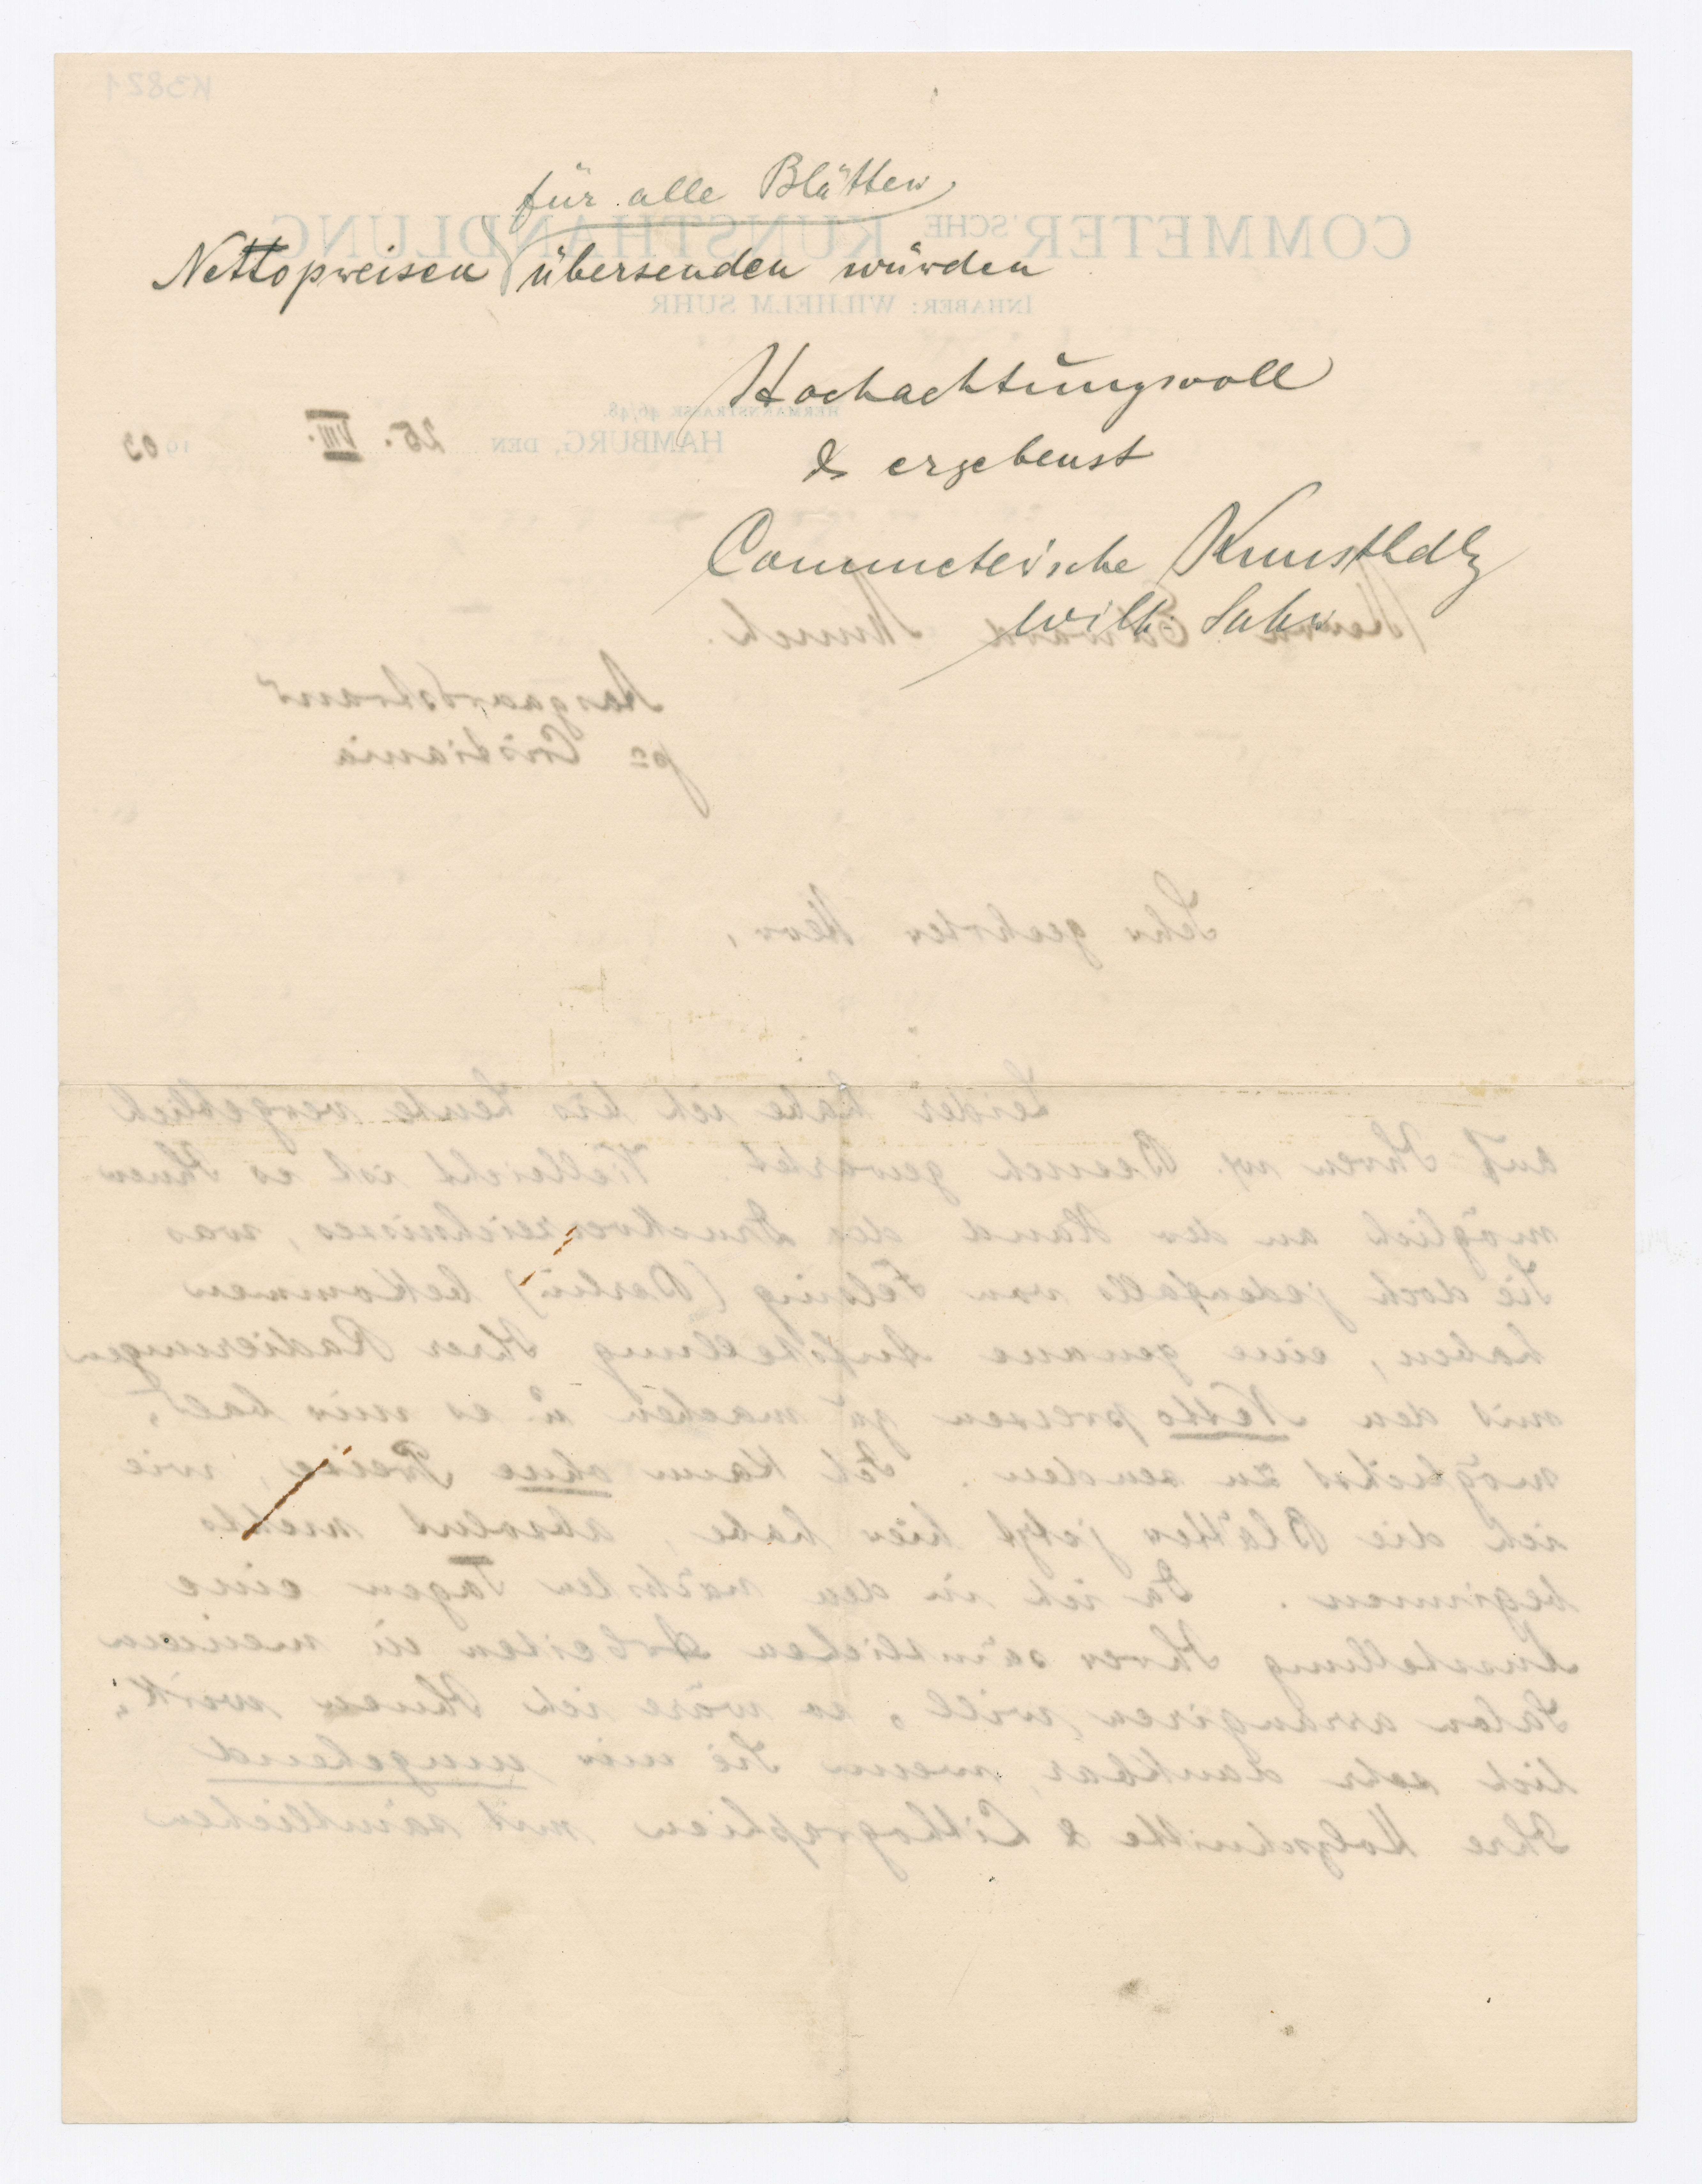 für alle Blätter
Nettopreisen übersenden würden
Hochachtungsvoll
& ergebenst
Commeter'sche Kunsthdlg
Wilh. Suhr